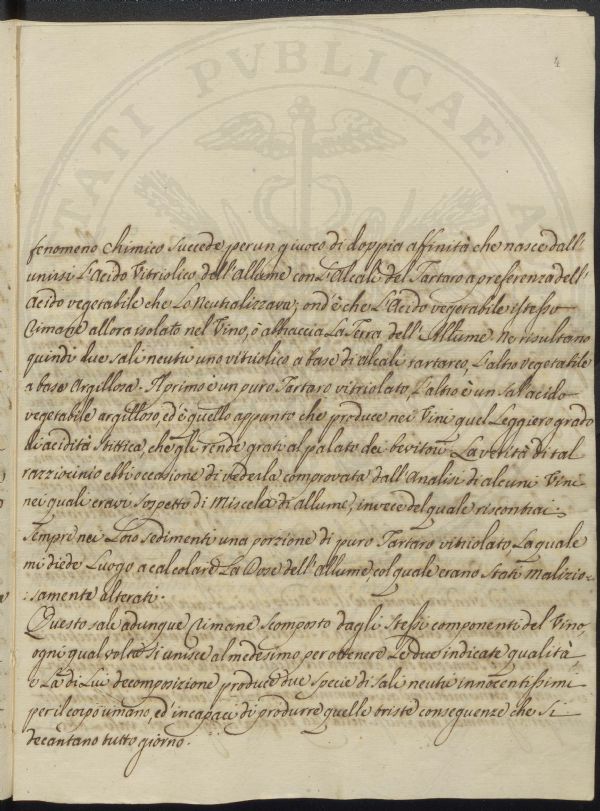 4
fenomeno chimico succede per un giuoco di doppia affinità che nasce dall'
unirsi l'Acido Vitriolico dell'Allume con l'Alcali del Tartaro a preferenza dell'
Acido vegetabile che lo neutralizzava; ond'è che l'Acido vegetabile istesso
rimane allora isolato nel Vino, ò abbraccia la Terra dell'Allume. Ne risultano
quindi due sali neutri uno vitriolico a base di alcali tartareo, l'altro vegetabile
a base Argillosa. Il primo è un puro Tartaro vitriolato, l'altro è un sal acido
vegetabile argilloso, ed è quello appunto che produce nei Vini quel leggiero grado
di acidità stittica, che gli rende grati al palato dei bevitori. La verità di tal
razziocinio ebbi occasione di vederla comprovata dall'Analisi di alcuni Vini
nei quali eravi sospetto di Miscela di allume, invece del quale riscontrai
sempre nei loro sedimenti una porzione di puro Tartaro vitriolato, la quale
mi diede luogo a calcolare la Dose dell'allume col quale erano stati malizio-
:samente alterati.
Questo sale adunque rimane scomposto dagli stessi componenti del Vino,
ogni qual volta si unisce al medesimo per ottenere le due indicate qualità,
e la di lui decomposizione produce due specie di sali neutri innocentissimi
per il corpo umano, ed incapaci di produrre quelle triste conseguenze che si
decantano tutto giorno.
TATI PVBLICAE